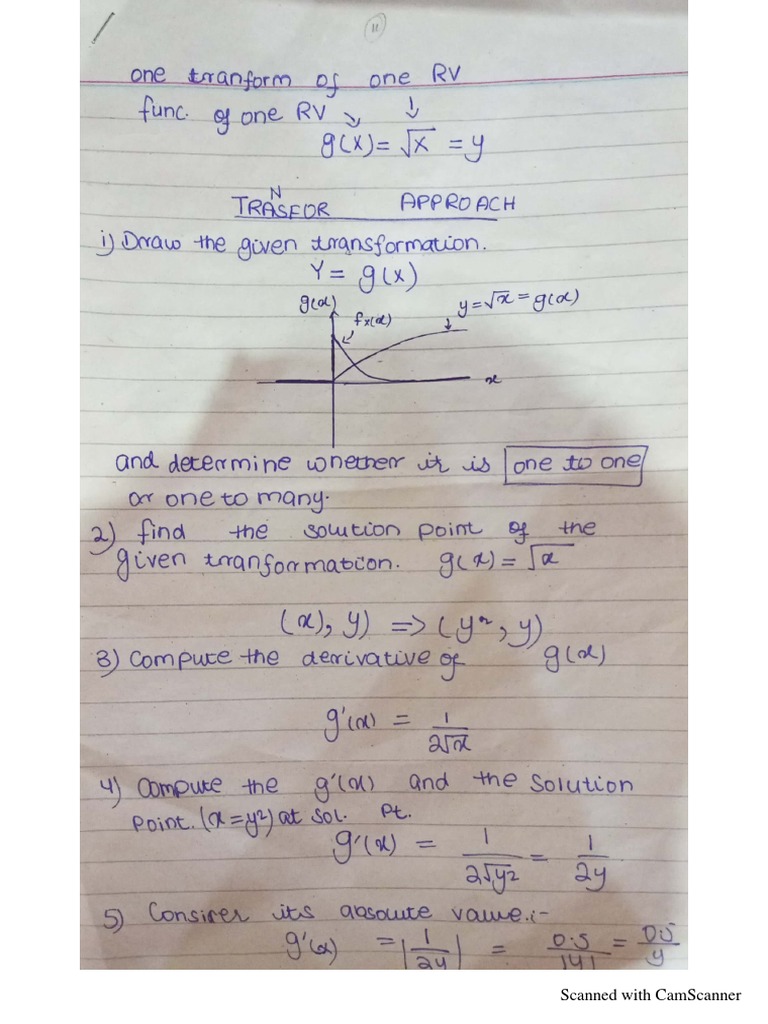 11
one tranform of one RV
func. of one RV
g(x) = √x = y
TRASFOR N APPROACH
i) Draw the given transformation.
Y = g(x)
g(x)
fx(x)
y = √x = g(x)
x
and determine whether it is one to one
or one to many.
2) find the solution point of the
given tranformation. g(x) = √x
(x), y) => (y², y)
3) Compute the derivative of g(x)
g'(x) = 1/2√x
4) Compute the g'(x) and the solution
point. (x = y²) at sol. pt.
g'(x) = 1/2√y² = 1/2y
5) Consirer its absolute value:-
g'(x) = |1/2y| = 0.5/|y| = 0.5/y
Scanned with CamScanner